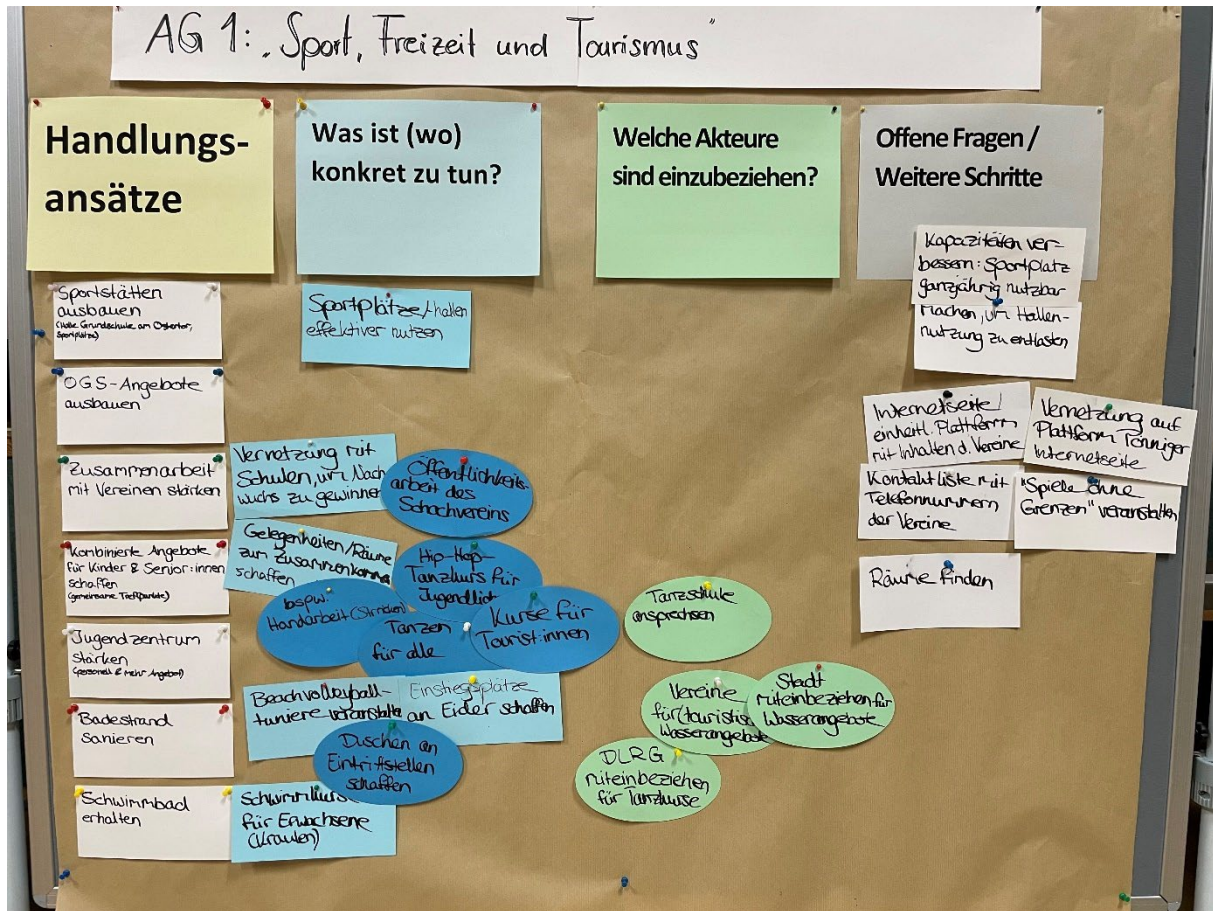 AG 1: „Sport, Freizeit und Tourismus"
Handlungs-
ansätze
Sportstätten
ausbauen
(Halle Grundschule am Ostertor,
Sportplätze)
OGS-Angebote
ausbauen
Zusammenarbeit
mit Vereinen stärken
Kombinierte Angebote
für Kinder & Senior:innen
schaffen
(gemeinsame Treffpunkte)
Jugendzentrum
stärken
(personell & mehr Angebot)
Badestrand
sanieren
Schwimmbad
erhalten
Was ist (wo)
konkret zu tun?
Sportplätze/-hallen
effektiver nutzen
Vernetzung mit
Schulen, um Nach
wuchs zu gewinnen
Öffentlichkeits-
arbeit des
Schachvereins
Gelegenheiten/Räume
zum Zusammenkomme
schaffen
Hip-Hop-
Tanzkurs für
Jugendlich
bspw.
Handarbeit (Stricken)
Tanzen
für alle
Kurse für
Tourist:innen
Beachvolleyball-
tuniere veranstalte
Einstiegsplätze
an Eider schaffen
Duschen an
Eintrittstellen
schaffen
Schwimmkurs
für Erwachsene
(Kraulen)
Welche Akteure
sind einzubeziehen?
Tanzschule
ansprechen
Vereine
für (touristisc
Wasserangebote
Stadt
miteinbeziehen für
Wasserangebote
DLRG
miteinbeziehen
für Tanzkurse
Offene Fragen /
Weitere Schritte
Kapazitäten ver-
bessern: Sportplatz
ganzjährig nutzbar
machen, um Hallen-
nutzung zu entlasten
Internetseite/
einheitl. Plattform
mit Inhalten d. Vereine
Vernetzung auf
Plattform Tönninger
Internetseite
Kontaktliste mit
Telefonnummern
der Vereine
"Spiele ohne
Grenzen" veranstalten
Räume finden